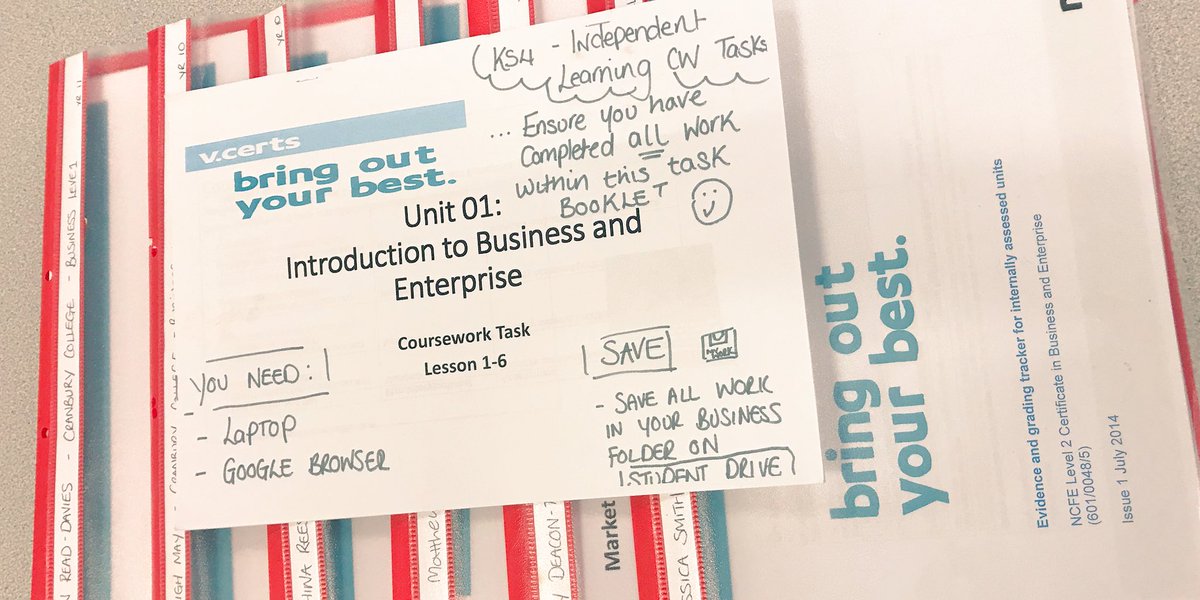 KS4 - Independent
Learning CW Tasks
... Ensure you have
Completed all work
within this task
BOOKLET
v.certs
bring out
your best.
Unit 01:
Introduction to Business and
Enterprise
Coursework Task
Lesson 1-6
YOU NEED:
- LAPTOP
- GOOGLE BROWSER
SAVE
- SAVE ALL WORK
IN YOUR BUSINESS
FOLDER ON
STUDENT DRIVE
bring out
your best.
Evidence and grading tracker for internally assessed units
NCFE Level 2 Certificate in Business and Enterprise
(601/0048/5)
Issue 1 July 2014
READ-DAVIES - CRANBURY COLLEGE - BUSINESS LEVEL 1
YR 11
MAY -
YR 10
YR
Matthew
DEACON-
Market
SMITH